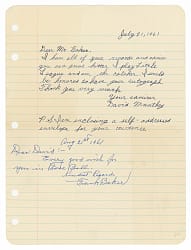 July 21, 1961
Dear Mr. Baker,
I have all of your records and
you are great. I play Little
League and am the catcher. I would
be honored to have your autograph.
Thank you very much.
Your admirer
David
P.S. I am enclosing a self-addressed
envelope for your convenience
Aug 21st 1961
Dear David:-
Every good wish for
you in Base Ball
Kindest Regards
Frank Baker